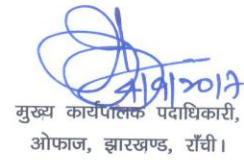 4/9/2017
मुख्य कार्यपालक पदाधिकारी,
ओफाज, झारखण्ड, राँची।